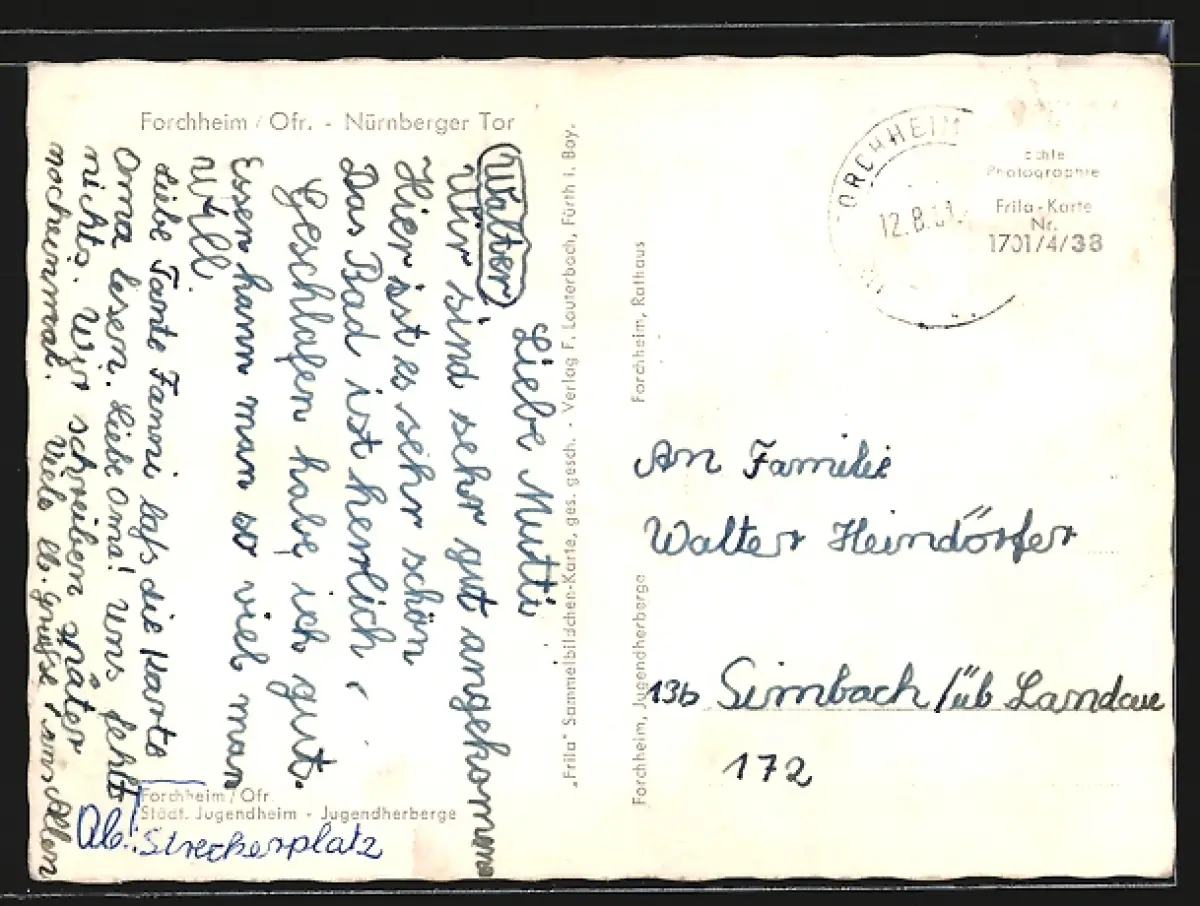 Forchheim / Ofr. - Nürnberger Tor
Walter
Liebe Mutti
Wir sind sehr gut angekommen
Hier ist es sehr schön
Das Bad ist herrlich,
Geschlafen habe ich gut.
Essen kann man so viel man
will.
Liebe Tante Fanni lass die Karte
Oma lesen. Liebe Oma! Uns fehlt
nichts. Wir schreiben später
nocheinmal. Viele lb. Grüsse, an Allen
Forchheim / Ofr.
Städt. Jugendheim - Jugendherberge
Ab.: Streckerplatz
„Frila" Sammelbildchen-Karte, ges. gesch. - Verlag F. Lauterbach, Fürth i. Bay.
Forchheim, Rathaus
Forchheim, Jugendherberge
FORCHHEIM
12.8.
Echte
Photographie
Frila-Karte
Nr.
1701/4/38
An Familie
Walter Heindörfer
13b Simbach / üb Landau
172